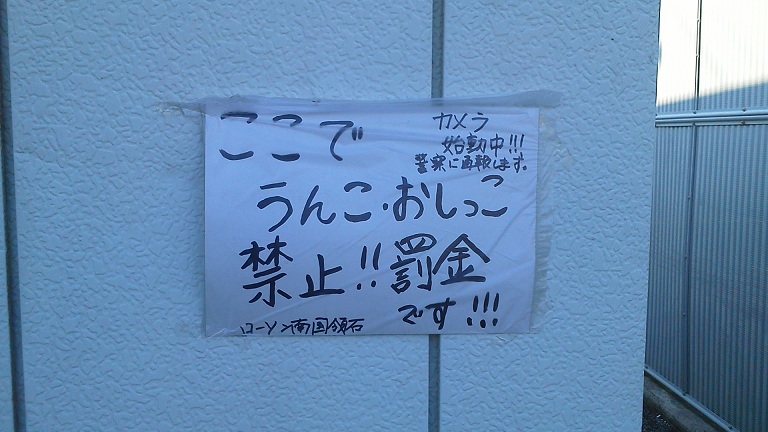 ここで
カメラ
始動中!!!
警察に通報します。
うんこ・おしっこ
禁止!!罰金
です!!!
ローソン南国領石